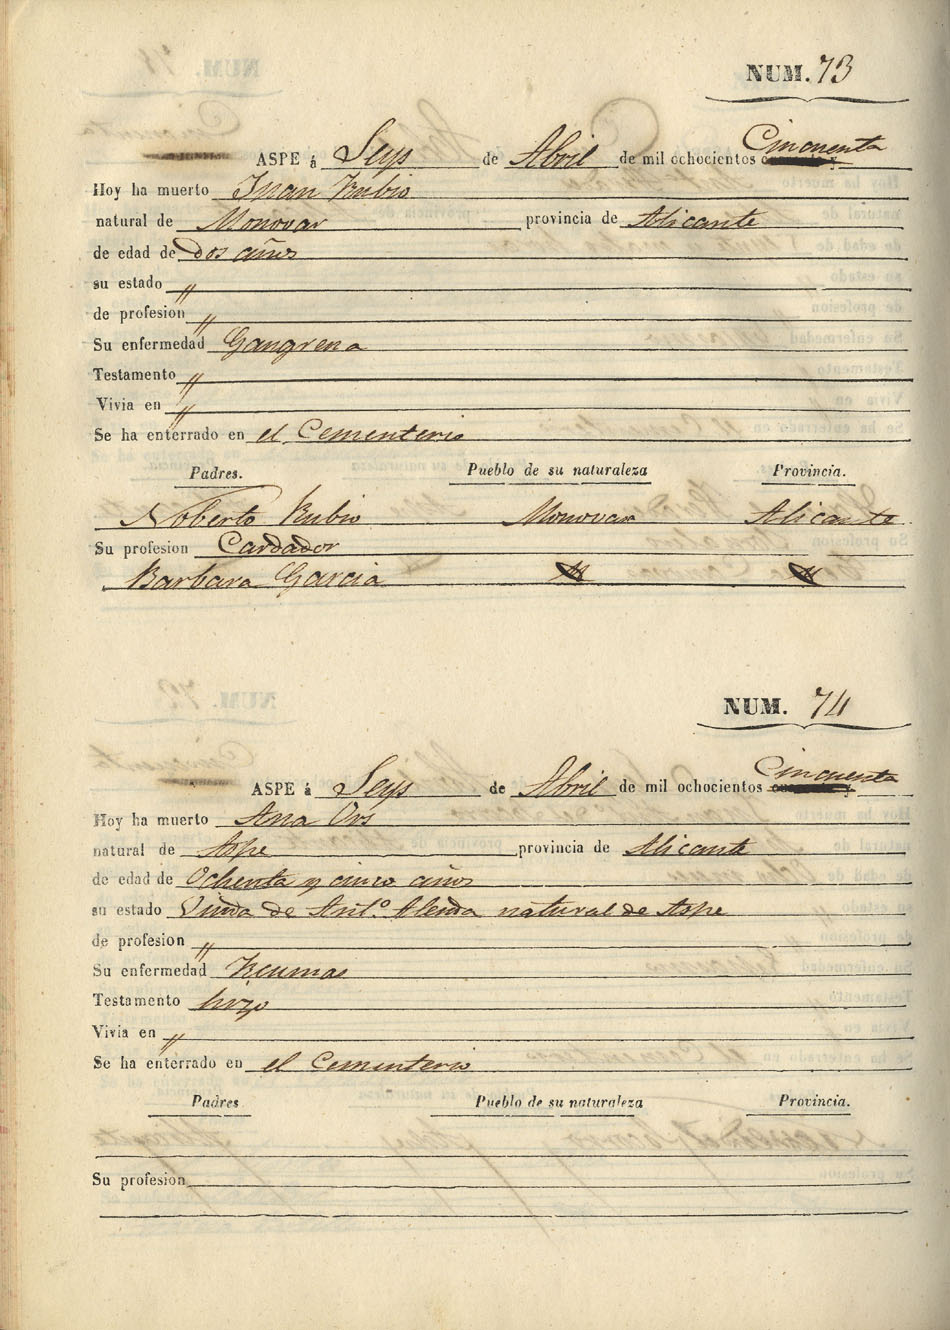 NUM. 73
ASPE á Seys de Abril de mil ochocientos Cincuenta
Hoy ha muerto Juan Rubio
natural de Monovar provincia de Alicante
de edad de dos años
su estado "
de profesion "
Su enfermedad Gangrena
Testamento "
Vivia en "
Se ha enterrado en el Cementerio
Padres. Pueblo de su naturaleza Provincia.
Noberto Rubio Monovar Alicante
Su profesion Cardador
Barbara Garcia
NUM. 74
ASPE á Seys de Abril de mil ochocientos Cincuenta
Hoy ha muerto Ana Ors
natural de Aspe provincia de Alicante
de edad de Ochenta y cinco años
su estado Viuda de Ant.º natural de Aspe
de profesion "
Su enfermedad Reumas
Testamento hizo
Vivia en "
Se ha enterrado en el Cementerio
Padres Pueblo de su naturaleza Provincia.
Su profesion